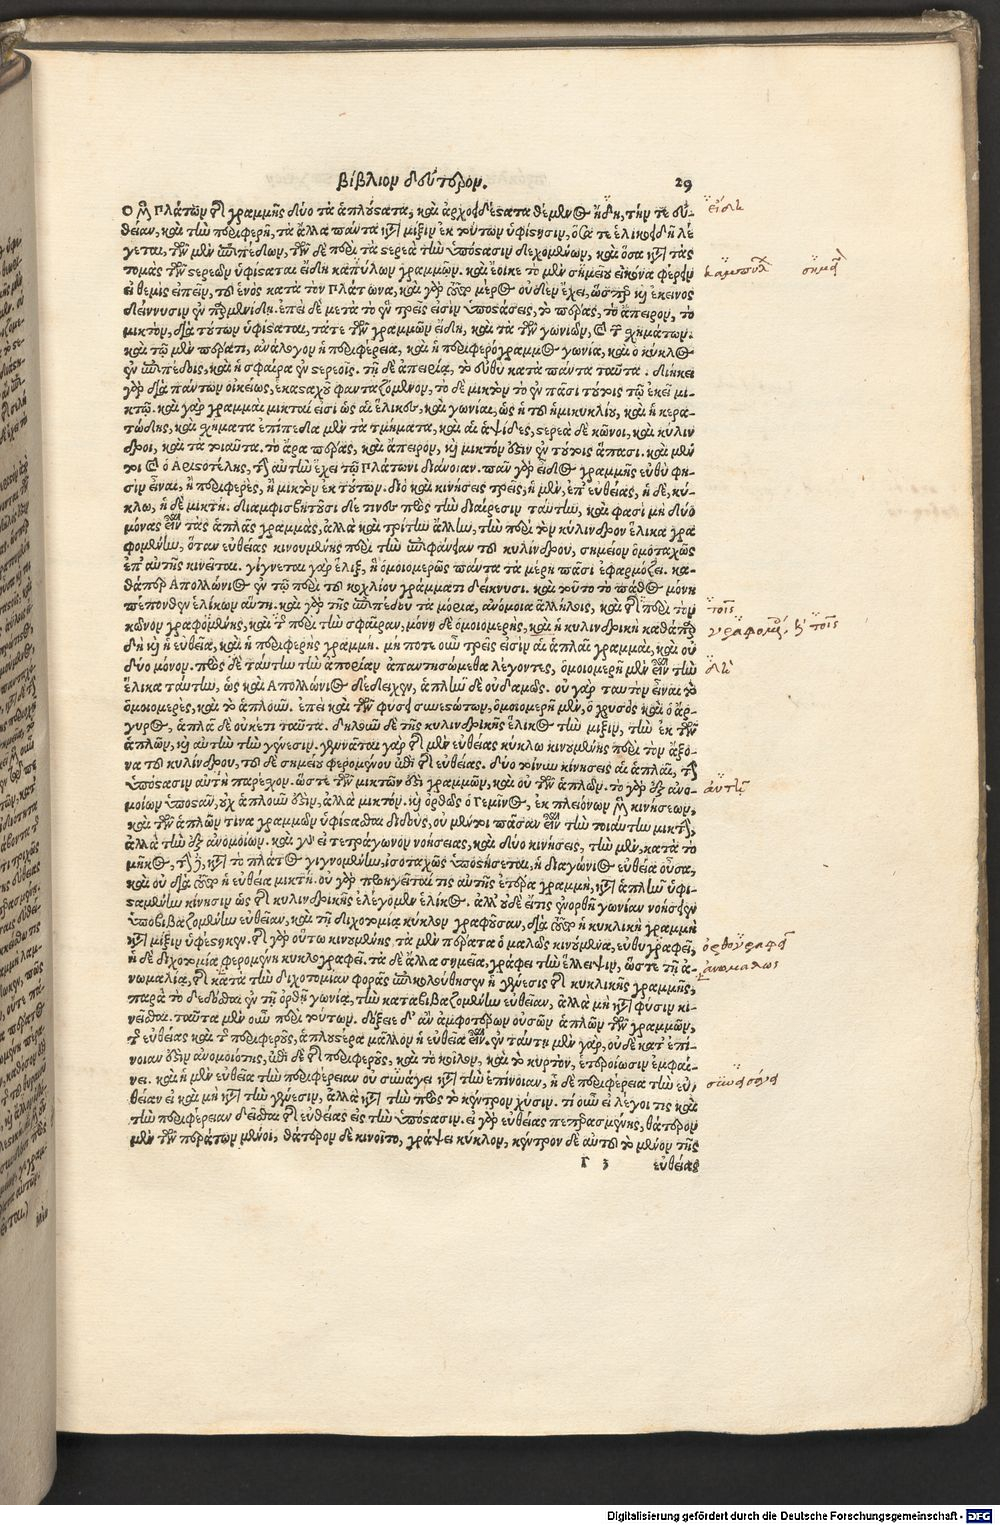 βίβλιον δεύτερον. 29
Ο μὲν Πλάτων τῆς γραμμῆς δύο τὰ ἁπλούστατα, καὶ ἀρχοειδέστατα θέμενος ἤδη, τήν τε εὐ-
θεῖαν, καὶ τὴν περιφερῆ, τὰ ἄλλα πάντα κατὰ μίξιν ἐκ τούτων ὑφίστησιν, ὅσα τε ἑλικοειδῆ λέ
γεται, τῶν μὲν ἐπιπέδων, τῶν δὲ περὶ τὰ στερεὰ τὴν ὑπόστασιν δεχομένων, καὶ ὅσα κατὰ τὰς
τομὰς τῶν στερεῶν ὑφίσταται εἴδη καπύλων γραμμῶν. καὶ ἔοικε τὸ μὲν σημεῖον εἰκόνα φέρειν
εἰ θεμις εἰπεῖν, τοῦ ἑνὸς κατὰ τὸν Πλάτωνα, καὶ γὰρ τοῦτο μέρος οὐδὲν ἔχει, ὥσπερ καὶ ἐκεῖνος
δείκνυσιν ἐν παρμενίδη. ἐπεὶ δὲ μετὰ τὸ ἓν τρεῖς εἰσιν ὑποστάσεις, τὸ πέρας, τὸ ἄπειρον, τὸ
μικτὸν, διὰ τούτων ὑφίσταται, τάτε τῶν γραμμῶν εἴδη, καὶ τὰ τῶν γωνιῶν, καὶ τῶν σχημάτων.
καὶ τῷ μὲν πέρατι, ἀνάλογον ἡ περιφέρεια, καὶ ἡ περιφερόγραμμος γωνία, καὶ ὁ κύκλος
ἐν ἐπιπέδοις, καὶ ἡ σφαῖρα ἐν στερεοῖς. τῇ δὲ ἀπειρίᾳ, τὸ εὐθὺ κατὰ πάντα ταῦτα. διήκει
γὰρ διὰ πάντων οἰκείως, ἑκασταχοῦ φανταζόμενον, τὸ δὲ μικτὸν τὸ ἐν πᾶσι τούτοις τῷ ἐκεῖ μι
κτῷ. καὶ γὰρ γραμμαὶ μικταί εἰσι ὡς αἱ ἕλικες, καὶ γωνίαι, ὡς ἡ τοῦ ἡμικυκλίου, καὶ ἡ κερα-
τώδης, καὶ σχήματα ἐπίπεδα μὲν τὰ τμήματα, καὶ αἱ ἀψίδες, στερεὰ δὲ κῶνοι, καὶ κύλιν
δροι, καὶ τὰ τοιαῦτα. τὸ ἄρα πέρας, καὶ ἄπειρον, καὶ μικτὸν ἔστιν ἐν τούτοις ἅπασι. καὶ μέν
τοι καὶ ὁ Αριστοτέλης, τὴν αὐτὴν ἔχει τῷ Πλάτωνι διάνοιαν. πᾶν γὰρ εἶδος γραμμῆς εὐθύ φη-
σιν εἶναι, ἢ περιφερὲς, ἢ μικτὸν ἐκ τούτων. διὸ καὶ κινήσεις τρεῖς, ἡ μὲν, ἐπ' εὐθείας, ἡ δὲ, κύ-
κλῳ, ἡ δὲ μικτὴ. διαμφισβητοῦσι δέ τινες πρὸς τὴν διαίρεσιν ταύτην, καὶ φασὶ μὴ δύο
μόνας εἶναι τὰς ἁπλᾶς γραμμὰς, ἀλλὰ καὶ τρίτην ἄλλην, τὴν περὶ τὸν κύλινδρον ἕλικα γρα
φομένην, ὅταν εὐθείας κινουμένης περὶ τὴν ἐπιφάνειαν τοῦ κυλίνδρου, σημεῖον ὁμοταχῶς
ἐπ' αὐτῆς κινεῖται. γίγνεται γὰρ ἕλιξ, ἡ ὁμοιομερῶς πάντα τὰ μέρη πᾶσι ἐφαρμόζει. κα-
θάπερ Απολλώνιος ἐν τῷ περὶ τοῦ κοχλίου γράμματι δείκνυσι. καὶ τοῦτο τὸ πάθος μόνη
πέπονθεν ἑλίκων αὕτη. καὶ γὰρ τῆς ἐπιπέδου τὰ μόρια, ἀνόμοια ἀλλήλοις, καὶ τῆς περὶ τὸν
κῶνον γραφομένης, καὶ τῆς περὶ τὴν σφαῖραν, μόνη δὲ ὁμοιομερὴς, καὶ ἡ κυλινδρικὴ καθάπερ
δὴ καὶ ἡ εὐθεῖα, καὶ ἡ περιφερὴς γραμμή. μή ποτε οὖν τρεῖς εἰσὶν αἱ ἁπλαῖ γραμμαὶ, καὶ οὐ
δύο μόνον. πρὸς δὲ ταύτην τὴν ἀπορίαν ἀπαντησώμεθα λέγοντες, ὁμοιομερῆ μὲν εἶναι τὴν
ἕλικα ταύτην, ὡς καὶ Απολλώνιος δέδειχεν, ἁπλῆν δὲ οὐδαμῶς. οὐ γὰρ ταυτὸν εἶναι τὸ
ὁμοιομερὲς, καὶ τὸ ἁπλοῦν. ἐπεὶ καὶ τῶν φύσει συνεστώτων, ὁμοιομερῆ μὲν, ὁ χρυσὸς καὶ ὁ ἄρ-
γυρος, ἁπλᾶ δὲ οὐκέτι ταῦτα. δηλοῦν δὲ τῆς κυλινδρικῆς ἕλικος τὴν μίξιν, τὴν ἐκ τῶν
ἁπλῶν, καὶ αὐτὴν τὴν γένεσιν. γεννᾶται γὰρ τῆς μὲν εὐθείας κύκλῳ κινουμένης περὶ τὸν ἄξο-
να τοῦ κυλίνδρου, τοῦ δὲ σημείου φερομένου ἐπὶ τῆς εὐθείας. δύο τοίνυν κινήσεις αἱ ἁπλαῖ, τὴν
ὑπόστασιν αὐτῆ παρέχον. ὥστε τῶν μικτῶν ἐστὶ γραμμῶν, καὶ οὐ τῶν ἁπλῶν. τὸ γὰρ ἐξ ἀνο-
μοίων ὑποστὰν, οὐχ ἁπλοῦν ἐστιν, ἀλλὰ μικτόν. καὶ ὀρθῶς ὁ Γεμῖνος, ἐκ πλειόνων μὲν κινήσεων,
καὶ τῶν ἁπλῶν τινα γραμμῶν ὑφίστασθαι διδοὺς, οὐ μέντοι πᾶσαν εἶναι τὴν τοιαύτην μικτὴν,
ἀλλὰ τὴν ἐξ ἀνομοίων. καὶ γὰρ εἰ τετράγωνον νοήσειας, καὶ δύο κινήσεις, τὴν μὲν, κατὰ τὸ
μῆκος, τὴν δὲ, κατὰ τὸ πλάτος γιγνομένην, ἰσοταχῶς ὑποστήσεται, ἡ διαγώνιος εὐθεῖα οὖσα,
καὶ οὐ διὰ τοῦτο ἡ εὐθεῖα μικτή. οὐ γὰρ προηγεῖταί τις αὐτῆς ἑτέρα γραμμὴ, κατὰ ἁπλῆν ὑφι-
σταμένην κίνησιν ὡς τῆς κυλινδρικῆς ἐλέγομεν ἕλικος. ἀλλ' οὐδὲ εἴ τις ἐνορθῆ γωνίαν νοήσειεν
ὑποβιβαζομένην εὐθεῖαν, καὶ τῇ διχοτομίᾳ κύκλον γραφοῦσαν, διὰ τοῦτο ἡ κυκλικὴ γραμμὴ
κατὰ μίξιν ὑφέστηκεν. τῆς γὰρ οὕτω κινουμένης, τὰ μὲν πέρατα ὁ μαλῶς κινούμενα, εὐθυγραφεῖ,
ἡ δὲ διχοτομία φερομένη κυκλογραφεῖ. τὰ δὲ ἄλλα σημεῖα, γράφει τὴν ἔλλειψιν, ὥστε τῇ ἀ-
νωμαλίᾳ, τῆς κατὰ τὴν διχοτομίαν φορᾶς ἐπικολούθησεν ἡ γένεσις τῆς κυκλικῆς γραμμῆς,
παρὰ τὸ δεδόσθαι ἐν τῇ ὀρθῇ γωνίᾳ, τὴν καταβιβαζομένην εὐθεῖαν, ἀλλὰ μὴ κατὰ φύσιν κι-
νεῖσθαι. ταῦτα μὲν οὖν περὶ τούτων. δόξειε δ' ἂν ἀμφοτέρων οὐσῶν ἁπλῶν τῶν γραμμῶν,
τῆς εὐθείας καὶ τῆς περιφεροῦς, ἁπλουστέρα μᾶλλον ἡ εὐθεῖα εἶναι. ἐν ταύτῃ μὲν γὰρ, οὐδὲ κατ' ἐπί-
νοιαν ἔστιν ἀνομοιότης, ἐπὶ δὲ τῆς περιφεροῦς, καὶ τὸ κοῖλον, καὶ τὸ κυρτὸν, ἑτεροίωσιν ἐμφαί-
νει. καὶ ἡ μὲν εὐθεῖα τὴν περιφέρειαν οὐ συνάγει κατὰ τὴν ἐπίνοιαν, ἡ δὲ περιφέρεια τὴν εὐ,
θεῖαν εἰ καὶ μὴ κατὰ τὴν γένεσιν, ἀλλὰ κατὰ τὴν πρὸς τὸ κέντρον χύσιν. τί οὖν εἰ λέγοι τις καὶ
τὴν περιφέρειαν δεῖσθαι τῆς εὐθείας εἰς τὴν ὑπόστασιν. εἰ γὰρ εὐθείας πεπερασμένης, θάτερον
μὲν τῶν περάτων μένοι, θάτερον δὲ κινοῖτο, γράψει κύκλον, κέντρον δὲ αὐτοῦ τὸ μένον τῆς
Γ 3 εὐθείας
εἴδη
καμπύλ
τοῖς
ἀνωμάλως